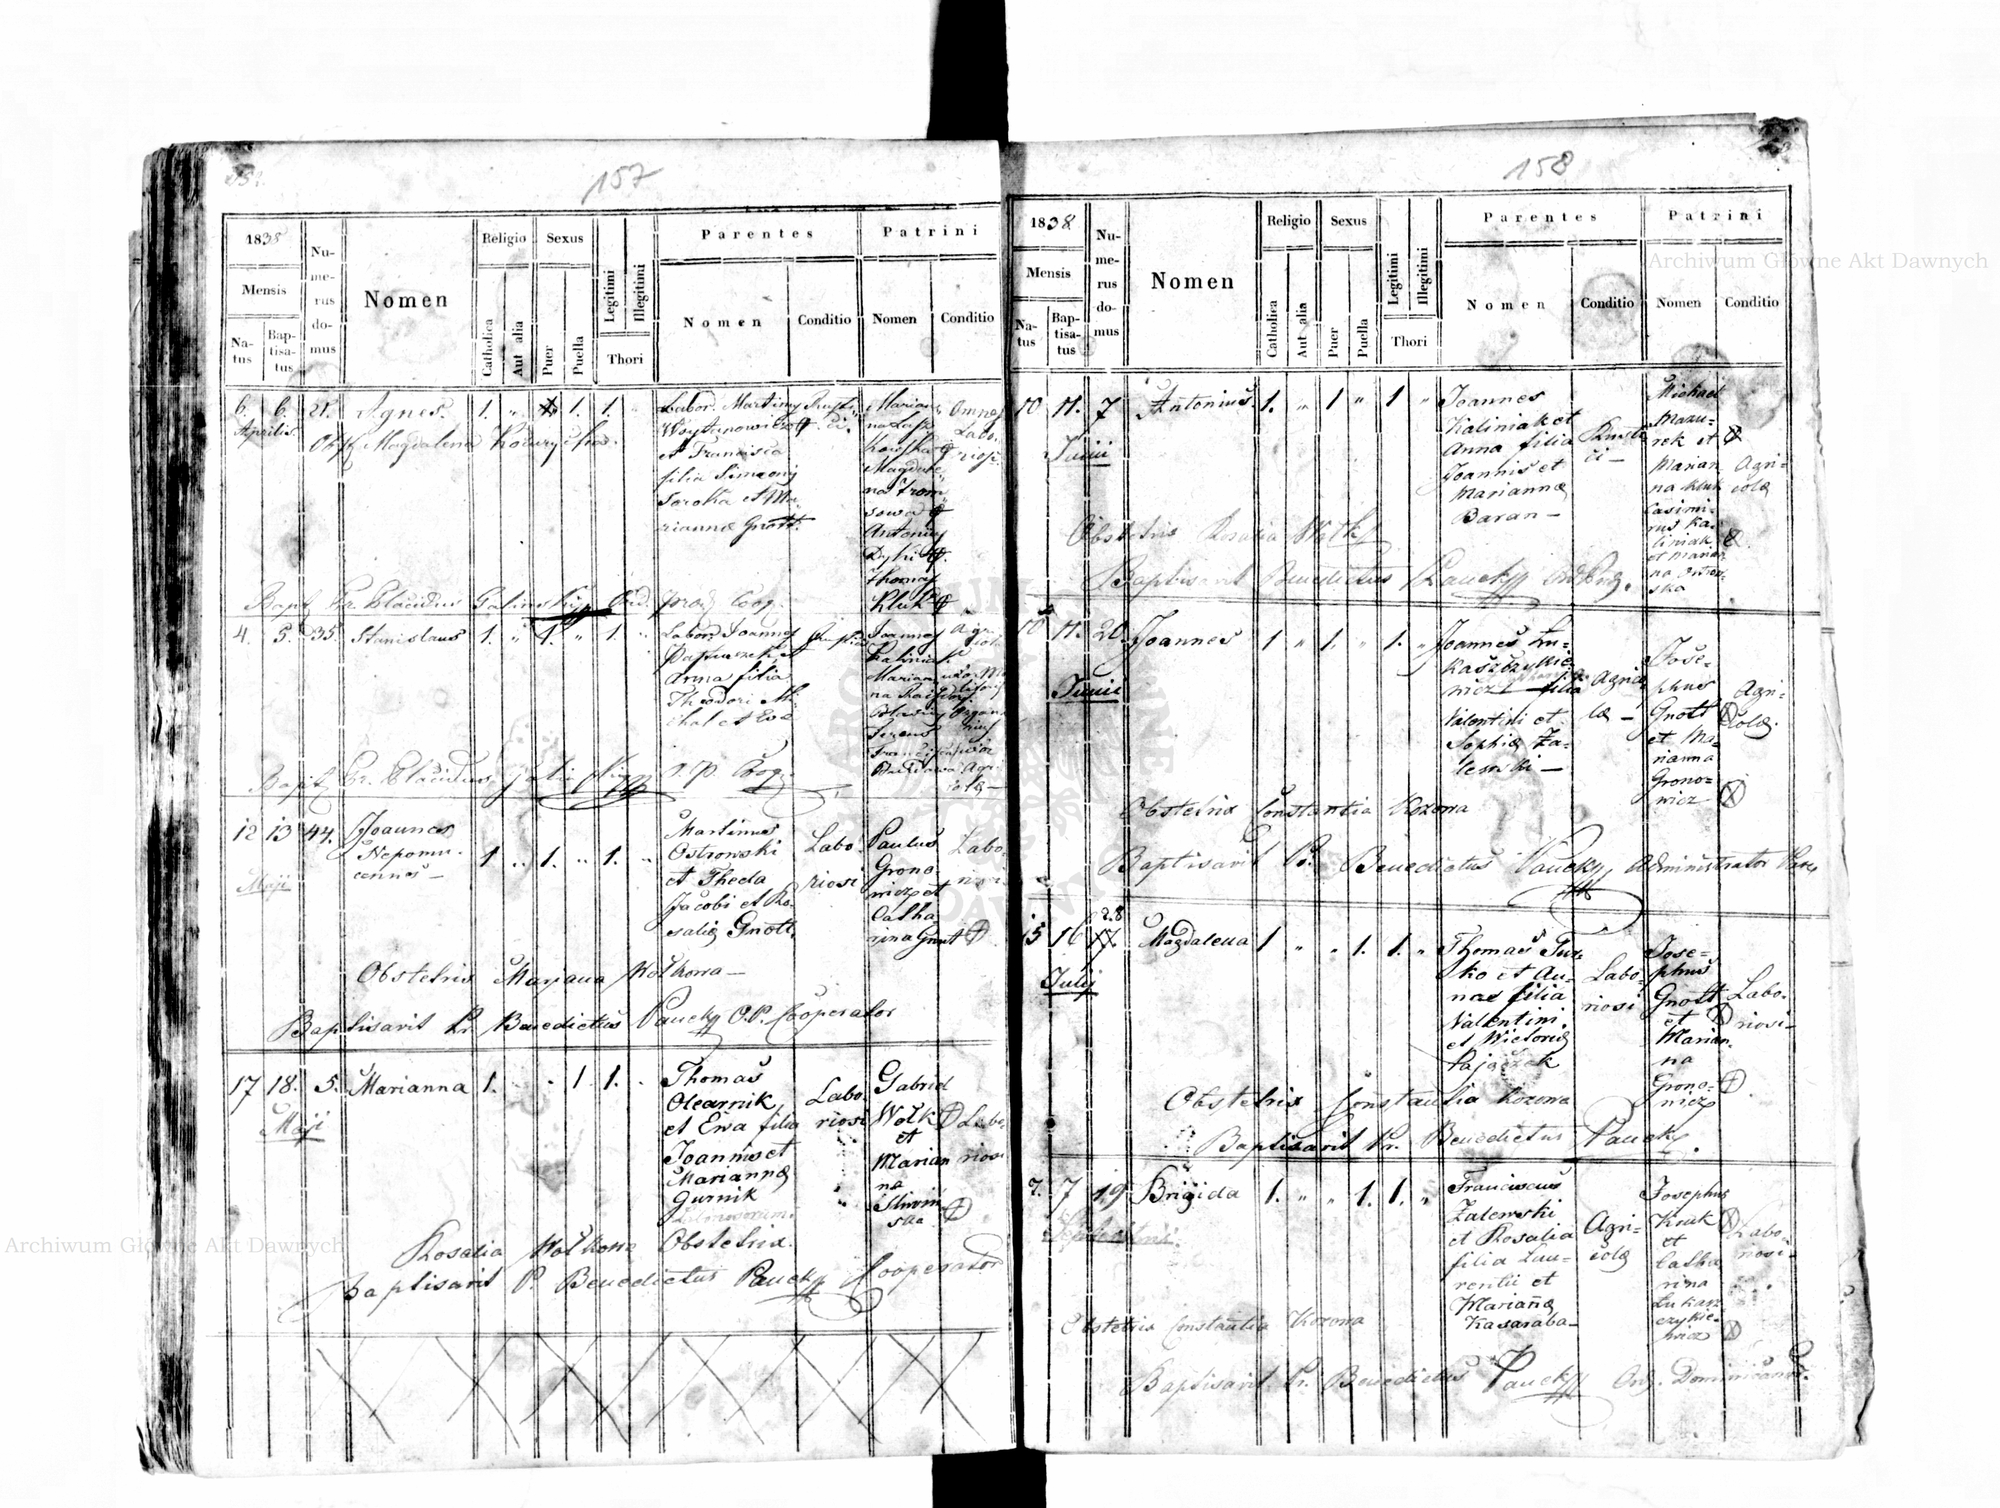 157
1838
Mensis
Natus
Baptisatus
Numerus domus
Nomen
Religio
Catholica
Aut alia
Sexus
Puer
Puella
Legitimi
Illegitimi
Thori
Parentes
Nomen
Conditio
Patrini
Nomen
Conditio
6. 6. 21. Agnes. 1. " 1. 1. "
Aprilis
Labor. Martinus
et Francisca
filia Simeonis
Soroka et Ma-
rianna Gnott.
Marian-
na
Magdale-
na
Antonius
Thomas
Kluk
Omnes
Labo-
riosi
Obst. Magdalena
Bapt. Fr. Placidus Galinski Ord. Praed. Coop.
4. 5. 35. Stanislaus 1. " 1. " 1. "
Labor. Joannes
et
Anna filia
Theodori Mi-
chal et Evae
Joannes
Kaliniak
Marian-
na
Bapt. Fr. Placidus Galinski O. P. Coop.
12 13 44. Joannes
Nepomu-
cennus
1 " 1. " 1. "
Maji
Martinus
Ostrowski
et Thecla
Jacobi et Ro-
salia Gnott.
Labo-
riosi
Paulus
Grono-
wicz et
Catha-
rina Gnott
Labo-
riosi
Obstetrix Marjana Wołkowa
Baptisavit Pr. Benedictus Paucky O.P. Cooperator
17 18. 5. Marianna 1. " 1 1.
Maji
Thomas
Olearnik
et Ewa filia
Joannis et
Marianna
Gurnik
Labo-
riosi
Gabriel
Wołk
et
Marian
na
Sliwin
ska
Labo
riosi
Rosalia Wołkowa Obstetrix.
Baptisavit P. Benedictus Paucky Cooperator
158
1838
Mensis
Natus
Baptisatus
Numerus domus
Nomen
Religio
Catholica
Aut alia
Sexus
Puer
Puella
Legitimi
Illegitimi
Thori
Parentes
Nomen
Conditio
Patrini
Nomen
Conditio
10 11. 7 Antonius 1. " 1 " 1 "
Junii
Joannes
Kaliniak et
Anna filia
Joannis et
Marianna
Baran
Rusti-
ci
Michael
Mazu-
rek et
Marian
na Kluk
Casimi-
rus Ka-
liniak
et Marian
na Ostrow-
ska
Agri-
colæ
Obstetrix Rosalia Wołk
Baptisavit Benedictus Paucky Ord. Præd.
10 11. 20. Joannes 1 " 1. " 1. "
Junii
Joannes Łu-
kaszczykie-
wicz filia
Valentini et
Sophiæ Za-
lewski
Agrico-
læ
Jose-
phus
Gnott
et Ma-
rianna
Grono-
wicz
Agri-
colæ.
Obstetrix Constantia Kozowa
Baptisavit P. Benedictus Paucky Administrator
15 16 28 Magdalena 1 " " 1. 1. "
Julij
Thomas Tur-
ko et An-
nae filia
Valentini
et Wictoria
Pajączek
Labo-
riosi
Jose-
phus
Gnott
et
Marian-
na
Grono-
wicz
Labo-
riosi
Obstetrix Constantia Kozowa
Baptisavit Pr. Benedictus Paucky.
7. 7 19 Brigida 1. " " 1. 1. "
Septembris.
Franciscus
Zalewski
et Rosalia
filia Lau-
rentii et
Marianæ
Kasaraba
Agri-
colæ
Josephus
Kruk
et
Catha
rina
Łukasz-
czykie-
wicz
Labo-
riosi
Obstetrix Constantia Kozowa
Baptisavit Pr. Benedictus Paucky Ord. Dominicanus.
Archiwum Główne Akt Dawnych
Archiwum Główne Akt Dawnych